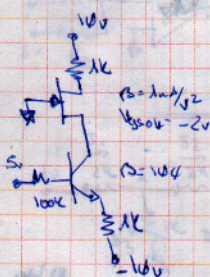 10V
1K
β=1mA/V²
VGSOFF=-2V
5v
β=100
100K
1K
-10V